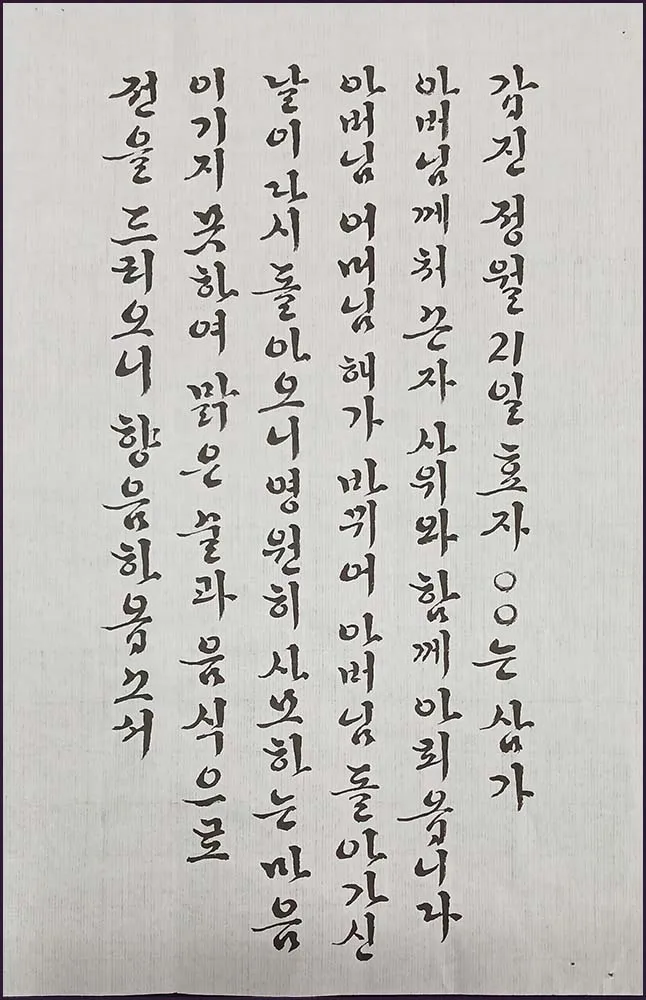 갑진 정월 21일 효자 ○○는 삼가
아버님께 허 큰자 사위와 함께 아뢰옵니다
아버님 어머님 해가 바뀌어 아버님 돌아가신
날이 다시 돌아오니 영원히 사모하는 마음
이기지 못하여 맑은 술과 음식으로
전을 드리오니 향음하옵소서